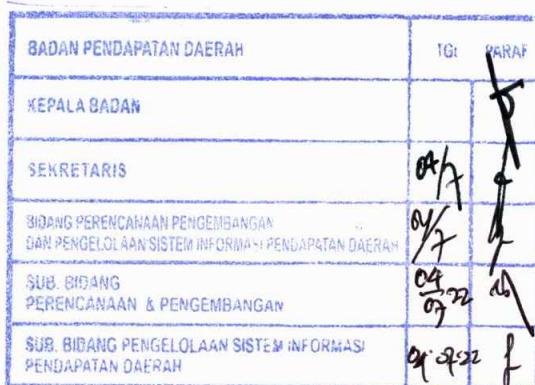 BADAN PENDAPATAN DAERAH TGL PARAF
KEPALA BADAN
SEKRETARIS 04/7
BIDANG PERENCANAAN PENGEMBANGAN
DAN PENGELOLAAN SISTEM INFORMASI PENDAPATAN DAERAH 04/7
SUB. BIDANG
PERENCANAAN & PENGEMBANGAN 04/07-22
SUB. BIDANG PENGELOLAAN SISTEM INFORMASI
PENDAPATAN DAERAH 04-07-22